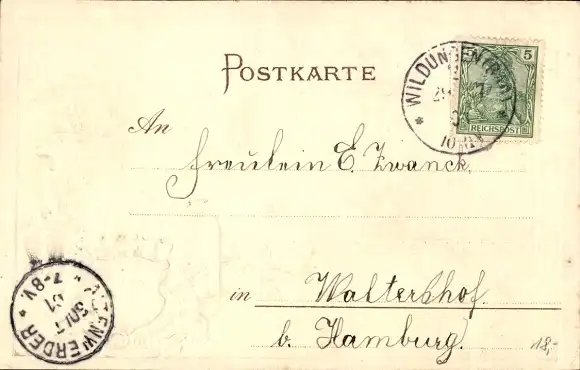 POSTKARTE
WILDUNGEN
5
REICHSPOST
An
Fräulein E. Zwanck.
in Waltershof
b. Hamburg.
7-8V.
18,-